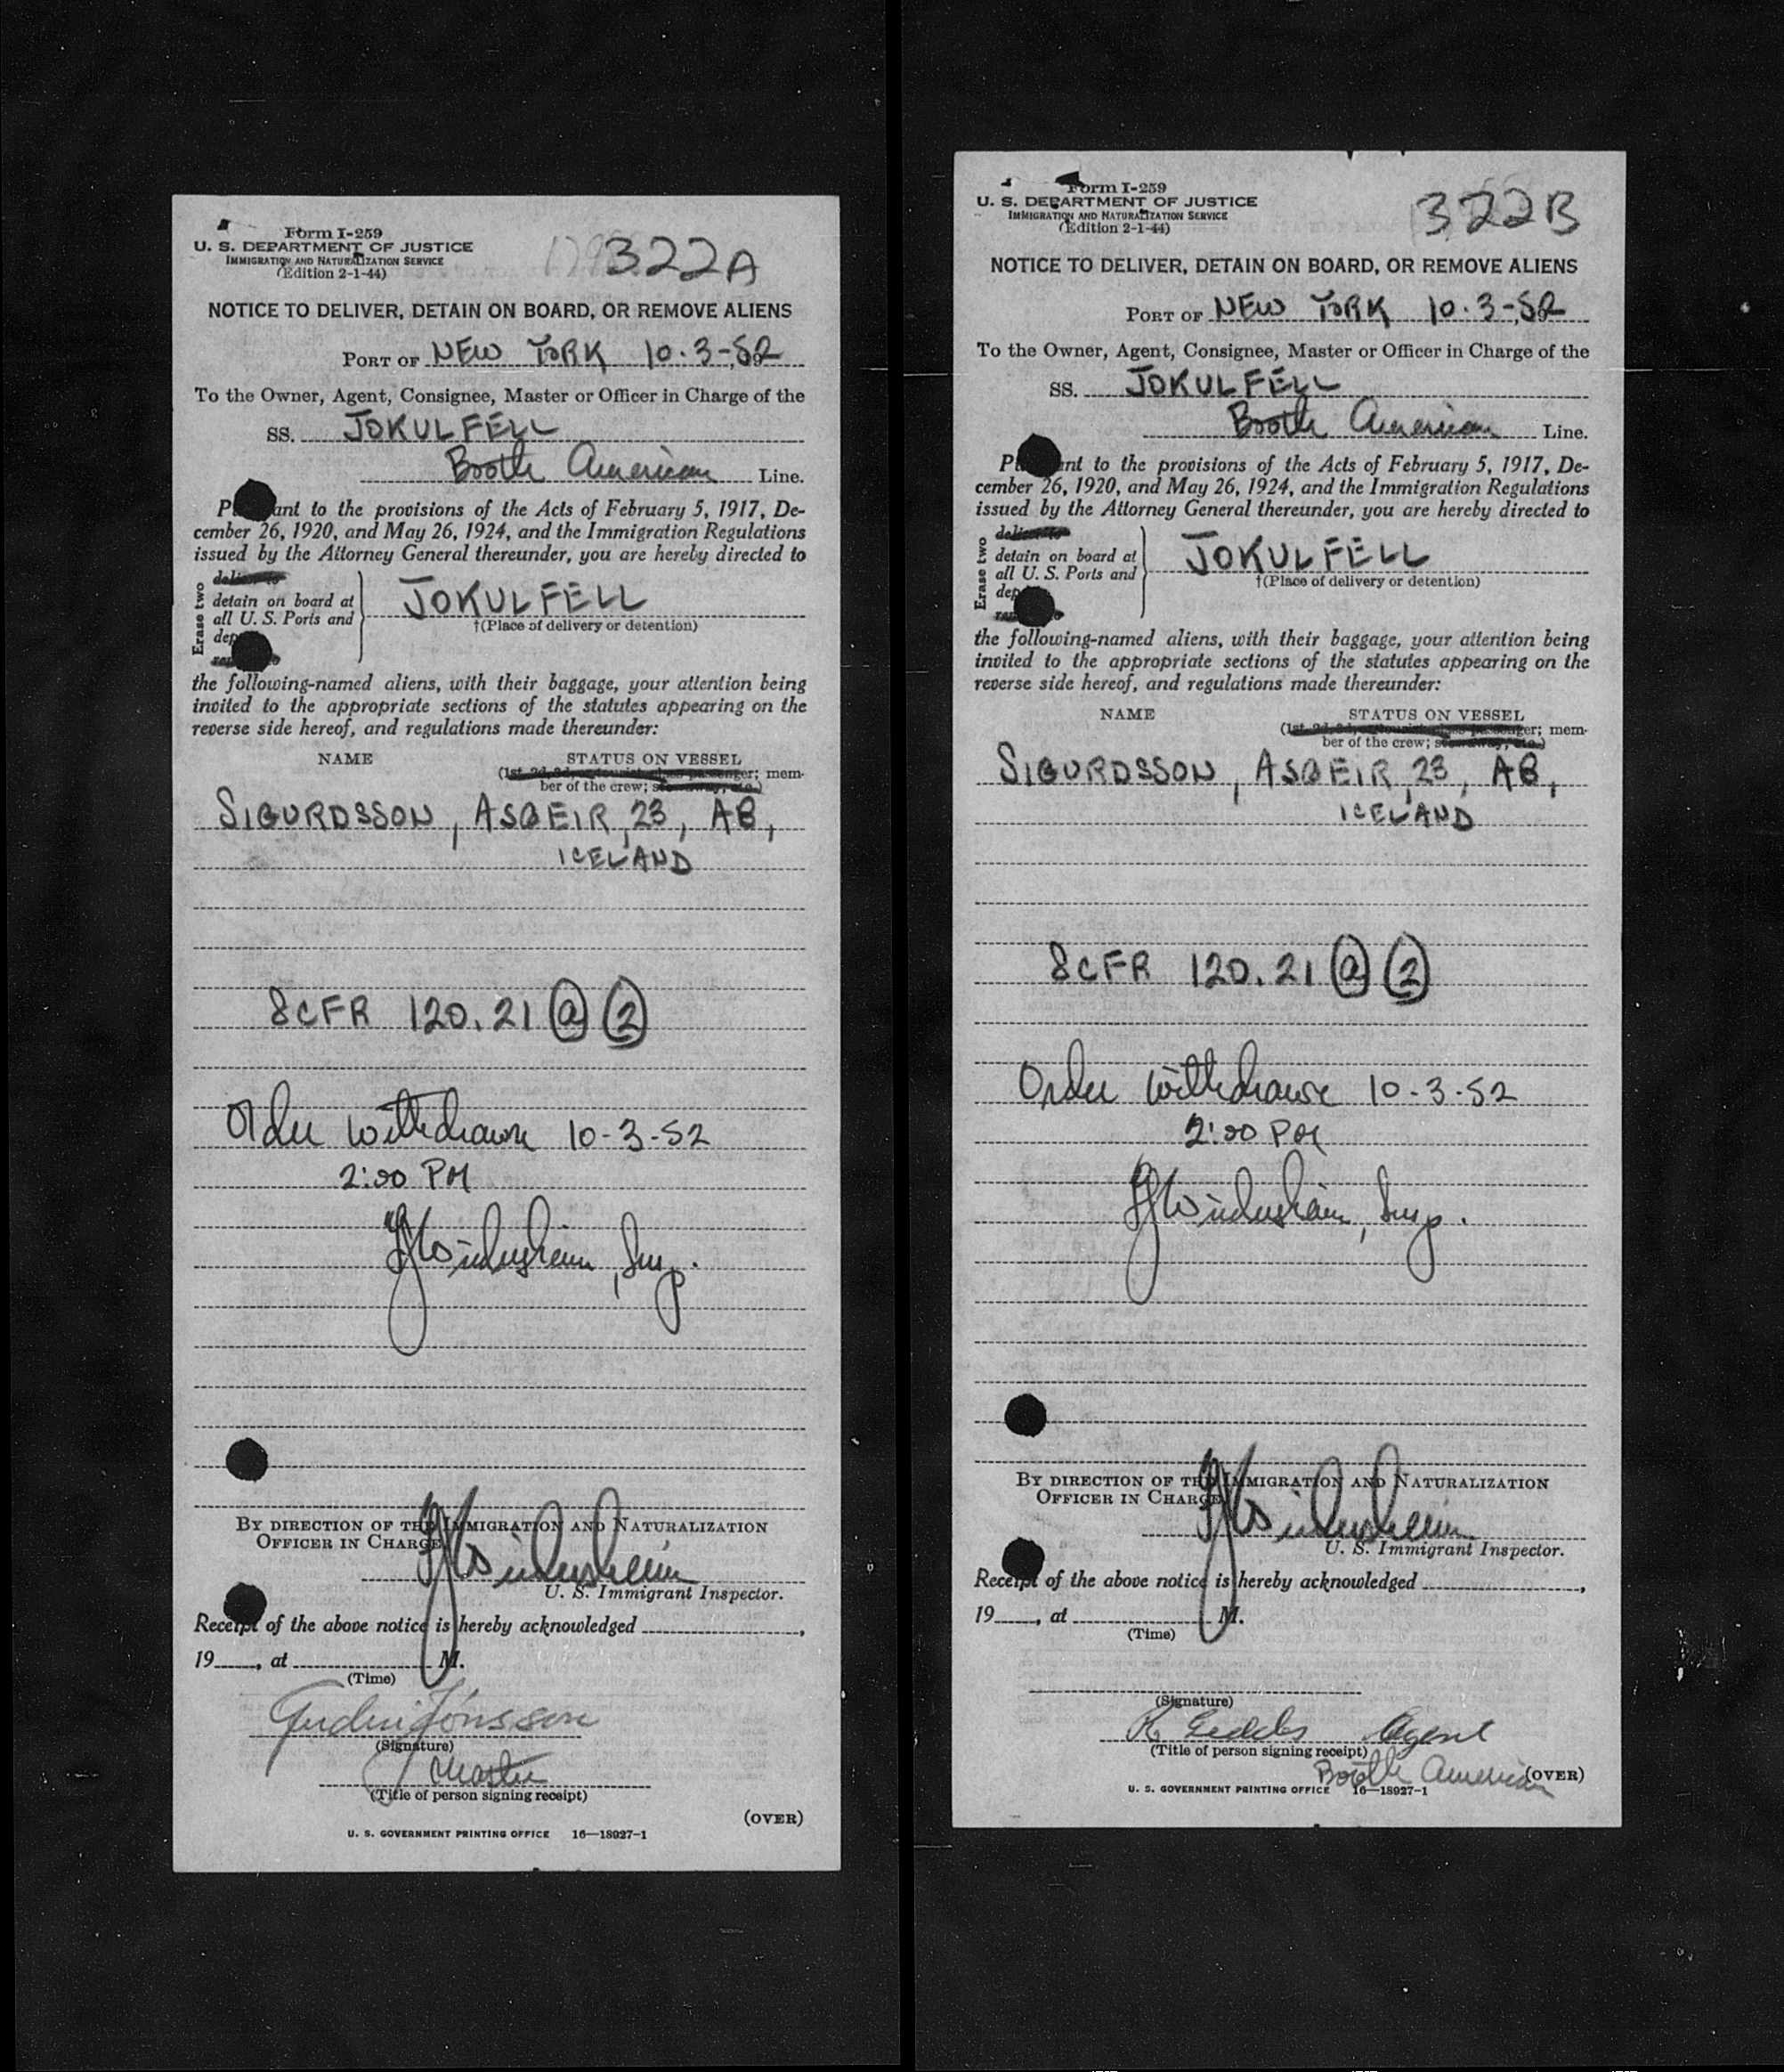 Form I-259
U. S. DEPARTMENT OF JUSTICE
IMMIGRATION AND NATURALIZATION SERVICE
(Edition 2-1-44)
322A
NOTICE TO DELIVER, DETAIN ON BOARD, OR REMOVE ALIENS
PORT OF NEW YORK 10-3-52
To the Owner, Agent, Consignee, Master or Officer in Charge of the
SS. JOKULFELL
Booth American Line.
ant to the provisions of the Acts of February 5, 1917, De-
cember 26, 1920, and May 26, 1924, and the Immigration Regulations
issued by the Attorney General thereunder, you are hereby directed to
Erase two
deliver to
detain on board at
all U. S. Ports and
JOKULFELL
†(Place of delivery or detention)
the following-named aliens, with their baggage, your attention being
invited to the appropriate sections of the statutes appearing on the
reverse side hereof, and regulations made thereunder:
NAME STATUS ON VESSEL
mem-
ber of the crew;
SIGURDSSON, ASGEIR, 23, AB,
ICELAND
8CFR 120.21 (a) (2)
Order withdrawn 10-3-52
2:00 PM
, Insp.
BY DIRECTION OF THE IMMIGRATION AND NATURALIZATION
OFFICER IN CHARGE
U. S. Immigrant Inspector.
Receipt of the above notice is hereby acknowledged
19 , at M.
(Time)
Jónsson
(Signature)
Master
(Title of person signing receipt)
(OVER)
U. S. GOVERNMENT PRINTING OFFICE 16—18927-1
Form I-259
U. S. DEPARTMENT OF JUSTICE
IMMIGRATION AND NATURALIZATION SERVICE
(Edition 2-1-44)
322B
NOTICE TO DELIVER, DETAIN ON BOARD, OR REMOVE ALIENS
PORT OF NEW YORK 10-3-52
To the Owner, Agent, Consignee, Master or Officer in Charge of the
SS. JOKULFELL
Booth American Line.
ant to the provisions of the Acts of February 5, 1917, De-
cember 26, 1920, and May 26, 1924, and the Immigration Regulations
issued by the Attorney General thereunder, you are hereby directed to
Erase two
deliver to
detain on board at
all U. S. Ports and
JOKULFELL
†(Place of delivery or detention)
the following-named aliens, with their baggage, your attention being
invited to the appropriate sections of the statutes appearing on the
reverse side hereof, and regulations made thereunder:
NAME STATUS ON VESSEL
mem-
ber of the crew;
SIGURDSSON, ASGEIR, 23, AB,
ICELAND
8CFR 120.21 (a) (2)
Order withdrawn 10-3-52
2:00 PM
, Insp.
BY DIRECTION OF THE IMMIGRATION AND NATURALIZATION
OFFICER IN CHARGE
U. S. Immigrant Inspector.
Receipt of the above notice is hereby acknowledged
19 , at M.
(Time)
(Signature)
Agent
(Title of person signing receipt)
Booth American
(OVER)
U. S. GOVERNMENT PRINTING OFFICE 16—18927-1